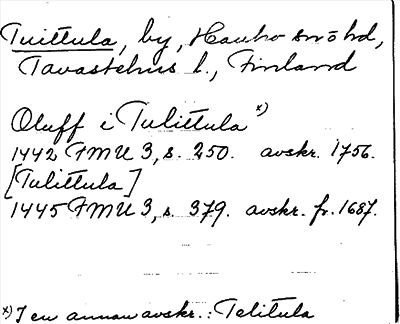 Tuittula, by, Hauho snö hd,
Tavastehus l., Finland
Oluff i Tulittula x)
1442 FMU 3, s. 250. avskr. 1756.
[Tulittula]
1445 FMU 3, s. 379. avskr. fr. 1687.
x) I en annan avskr.: Telitula